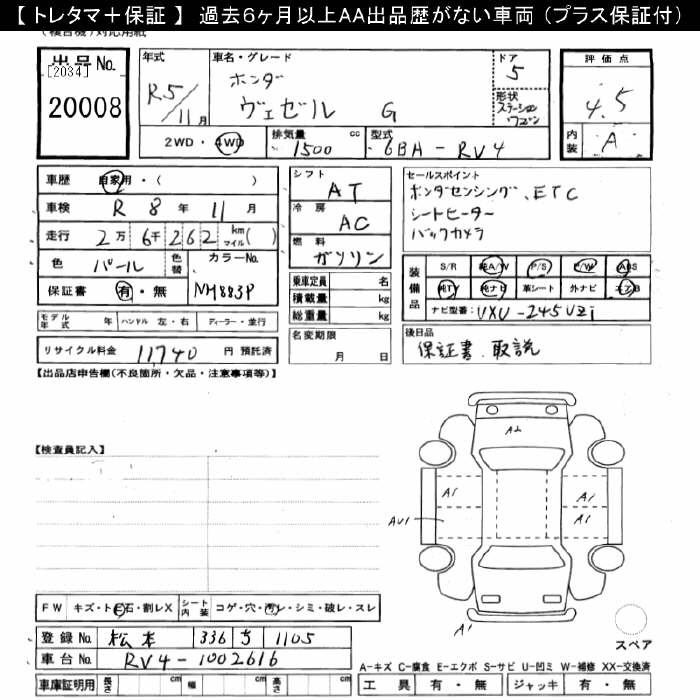 【 トレタマ＋保証 】 過去６ヶ月以上ＡＡ出品歴がない車両 （プラス保証付）
（複合機）対応用紙
出品No. [2034] 20008
年式 R5/11月
車名・グレード ホンダ ヴェゼル G
ドア 5
形状 ステーションワゴン
評価点 4.5
内装 A
2WD・4WD
排気量 1500 cc
型式 6BA-RV4
車歴 自家用・( )
車検 R 8年 11月
走行 2万 6千 262 km マイル( )
色 パール 色替 カラーNo.
保証書 有・無 NH883P
シフト AT
冷房 AC
燃料 ガソリン
乗車定員 名
積載量 kg
総重量 kg
セールスポイント
ホンダセンシング、ETC
シートヒーター
バックカメラ
装備品 S/R 純A/W P/S P/W ABS
純TV 純ナビ 革シート 外ナビ エアB
ナビ型番: VXU-245VZi
モデル年式 年 ハンドル 左・右 ディーラー・並行
リサイクル料金 11740 円 預託済
名変期限 月 日
後日品
保証書、取説
【出品店申告欄(不良箇所・欠品・注意事項等)】
【検査員記入】
A2
A1
A1
AU1
A1
A1
FW キズ・トビ石・割レX シート内装 コゲ・穴・汚レ・シミ・破レ・スレ
登録No. 松本 336 ち 1105
車台No. RV4-1002616
スペア
A-キズ C-腐食 E-エクボ S-サビ U-凹ミ W-補修 XX-交換済
車庫証明用 長さ cm 幅 cm 高さ cm
工具 有・無 ジャッキ 有・無